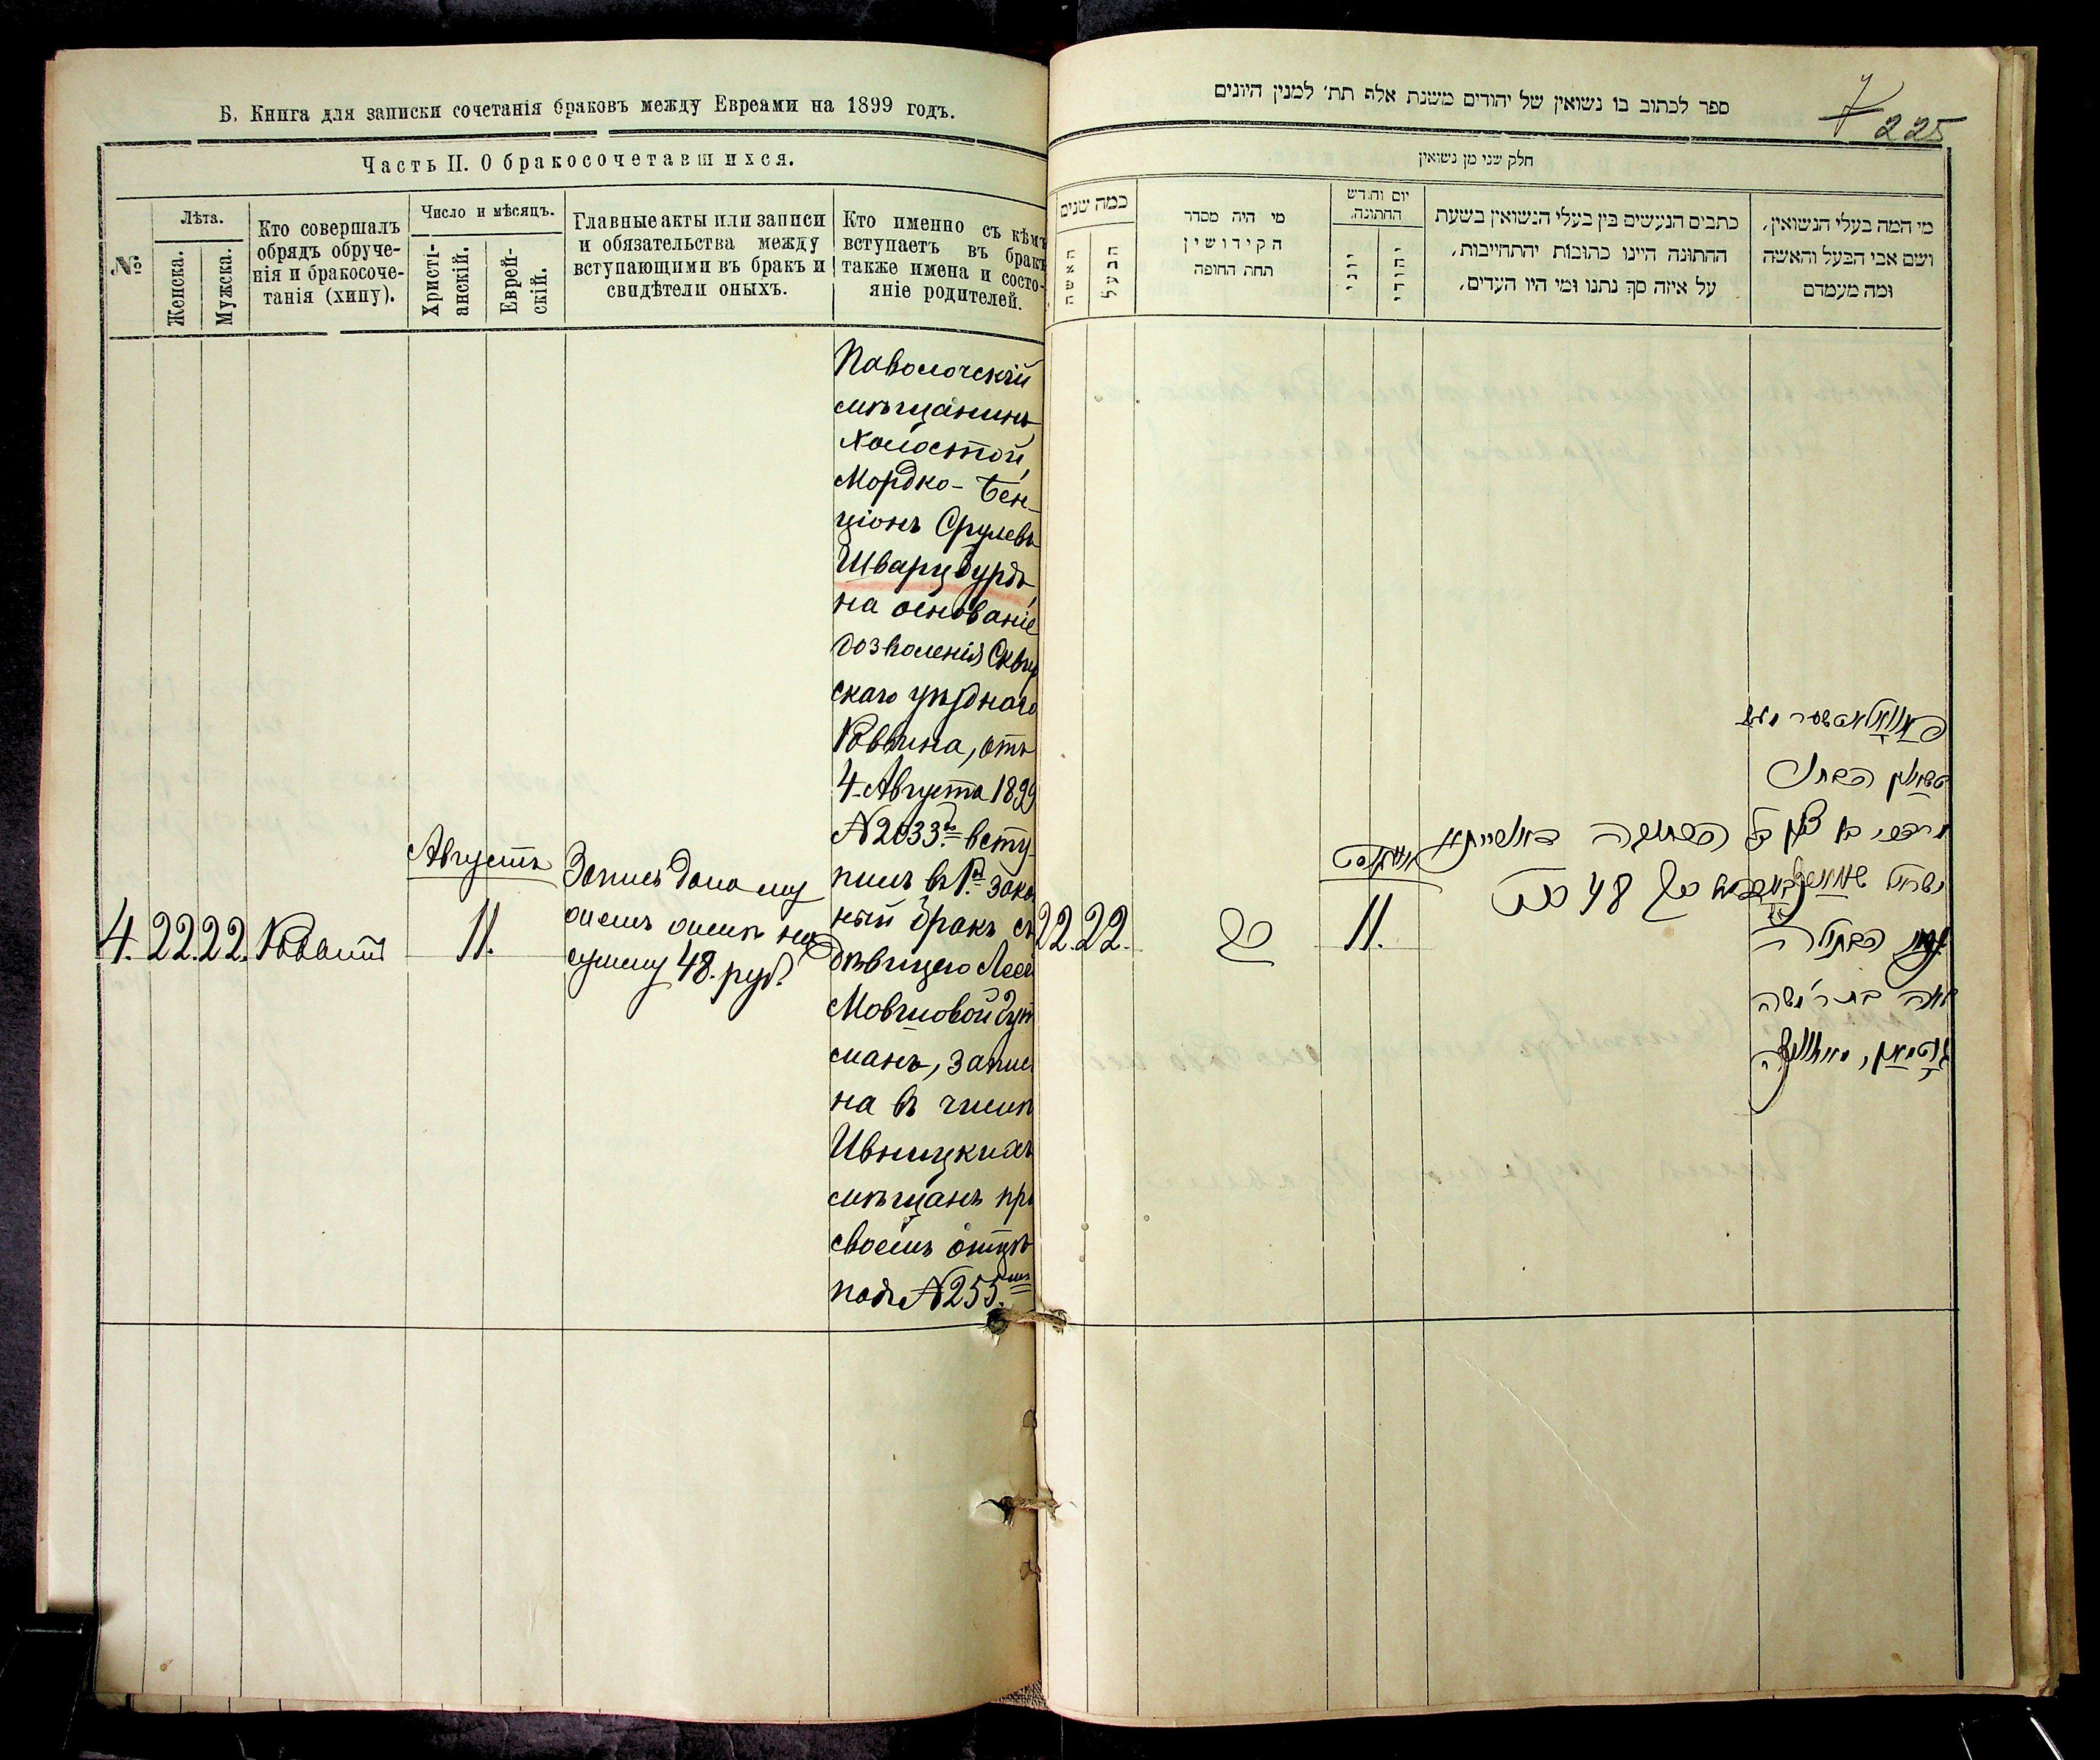 Б. Книга для записки сочетанія браковъ между Евреями на 1899 годъ.
Часть II. О бракосочетавшихся.
№
Лѣта.
Женска.
Мужска.
Кто совершалъ
обрядъ обруче-
нія и бракосоче-
танія (хипу).
Число и мѣсяцъ.
Христі-
анскій.
Еврей-
скій.
Главные акты или записи
и обязательства между
вступающими въ бракъ и
свидѣтели оныхъ.
Кто именно съ кѣмъ
вступаетъ въ бракъ
также имена и состо-
яніе родителей.
4.
22.
22.
Раввинъ
Августъ
11.
Запись дана му
жемъ женѣ на
сумму 48. руб.
Паволочскій
мѣщанинъ,
холостой,
Мордко-Бен-
ціонъ Срулевъ
Шварцбурдъ,
на основаніе
дозволенія Сквир
скаго уѣзднаго
Раввина, отъ
4 Августа 1899
№ 2033 всту-
пилъ въ 1й закон
ный бракъ съ
дѣвицею Леей
Мовшовой Гут
манъ, запис
на въ числѣ
Ивницкихъ
мѣщанъ при
своемъ отцѣ
подъ № 255
ספר לכתוב בו נשואין של יהודים משנת אלף תת׳ למנין היונים
7
225
חלק שני מן נשואין
כמה שנים
האשה
הבעל
מי היה מסדר
הקידושין
תחת החופה
יום וחדש
החתונה.
יוני
יהודי
כתבים הנעשים בין בעלי הנשואין בשעת
החתונה היינו כתובות והתחייבות,
על איזה סך נתנו ומי היו העדים,
מי המה בעלי הנשואין,
ושם אבי הבעל והאשה
ומה מעמדם
22.
22.
רב
אווגוסט
11.
סך 48
הבחור
מרדכי בן ציון בן
ישראל
הבתולה
לאה בת ר׳ משה
גוטמאן,